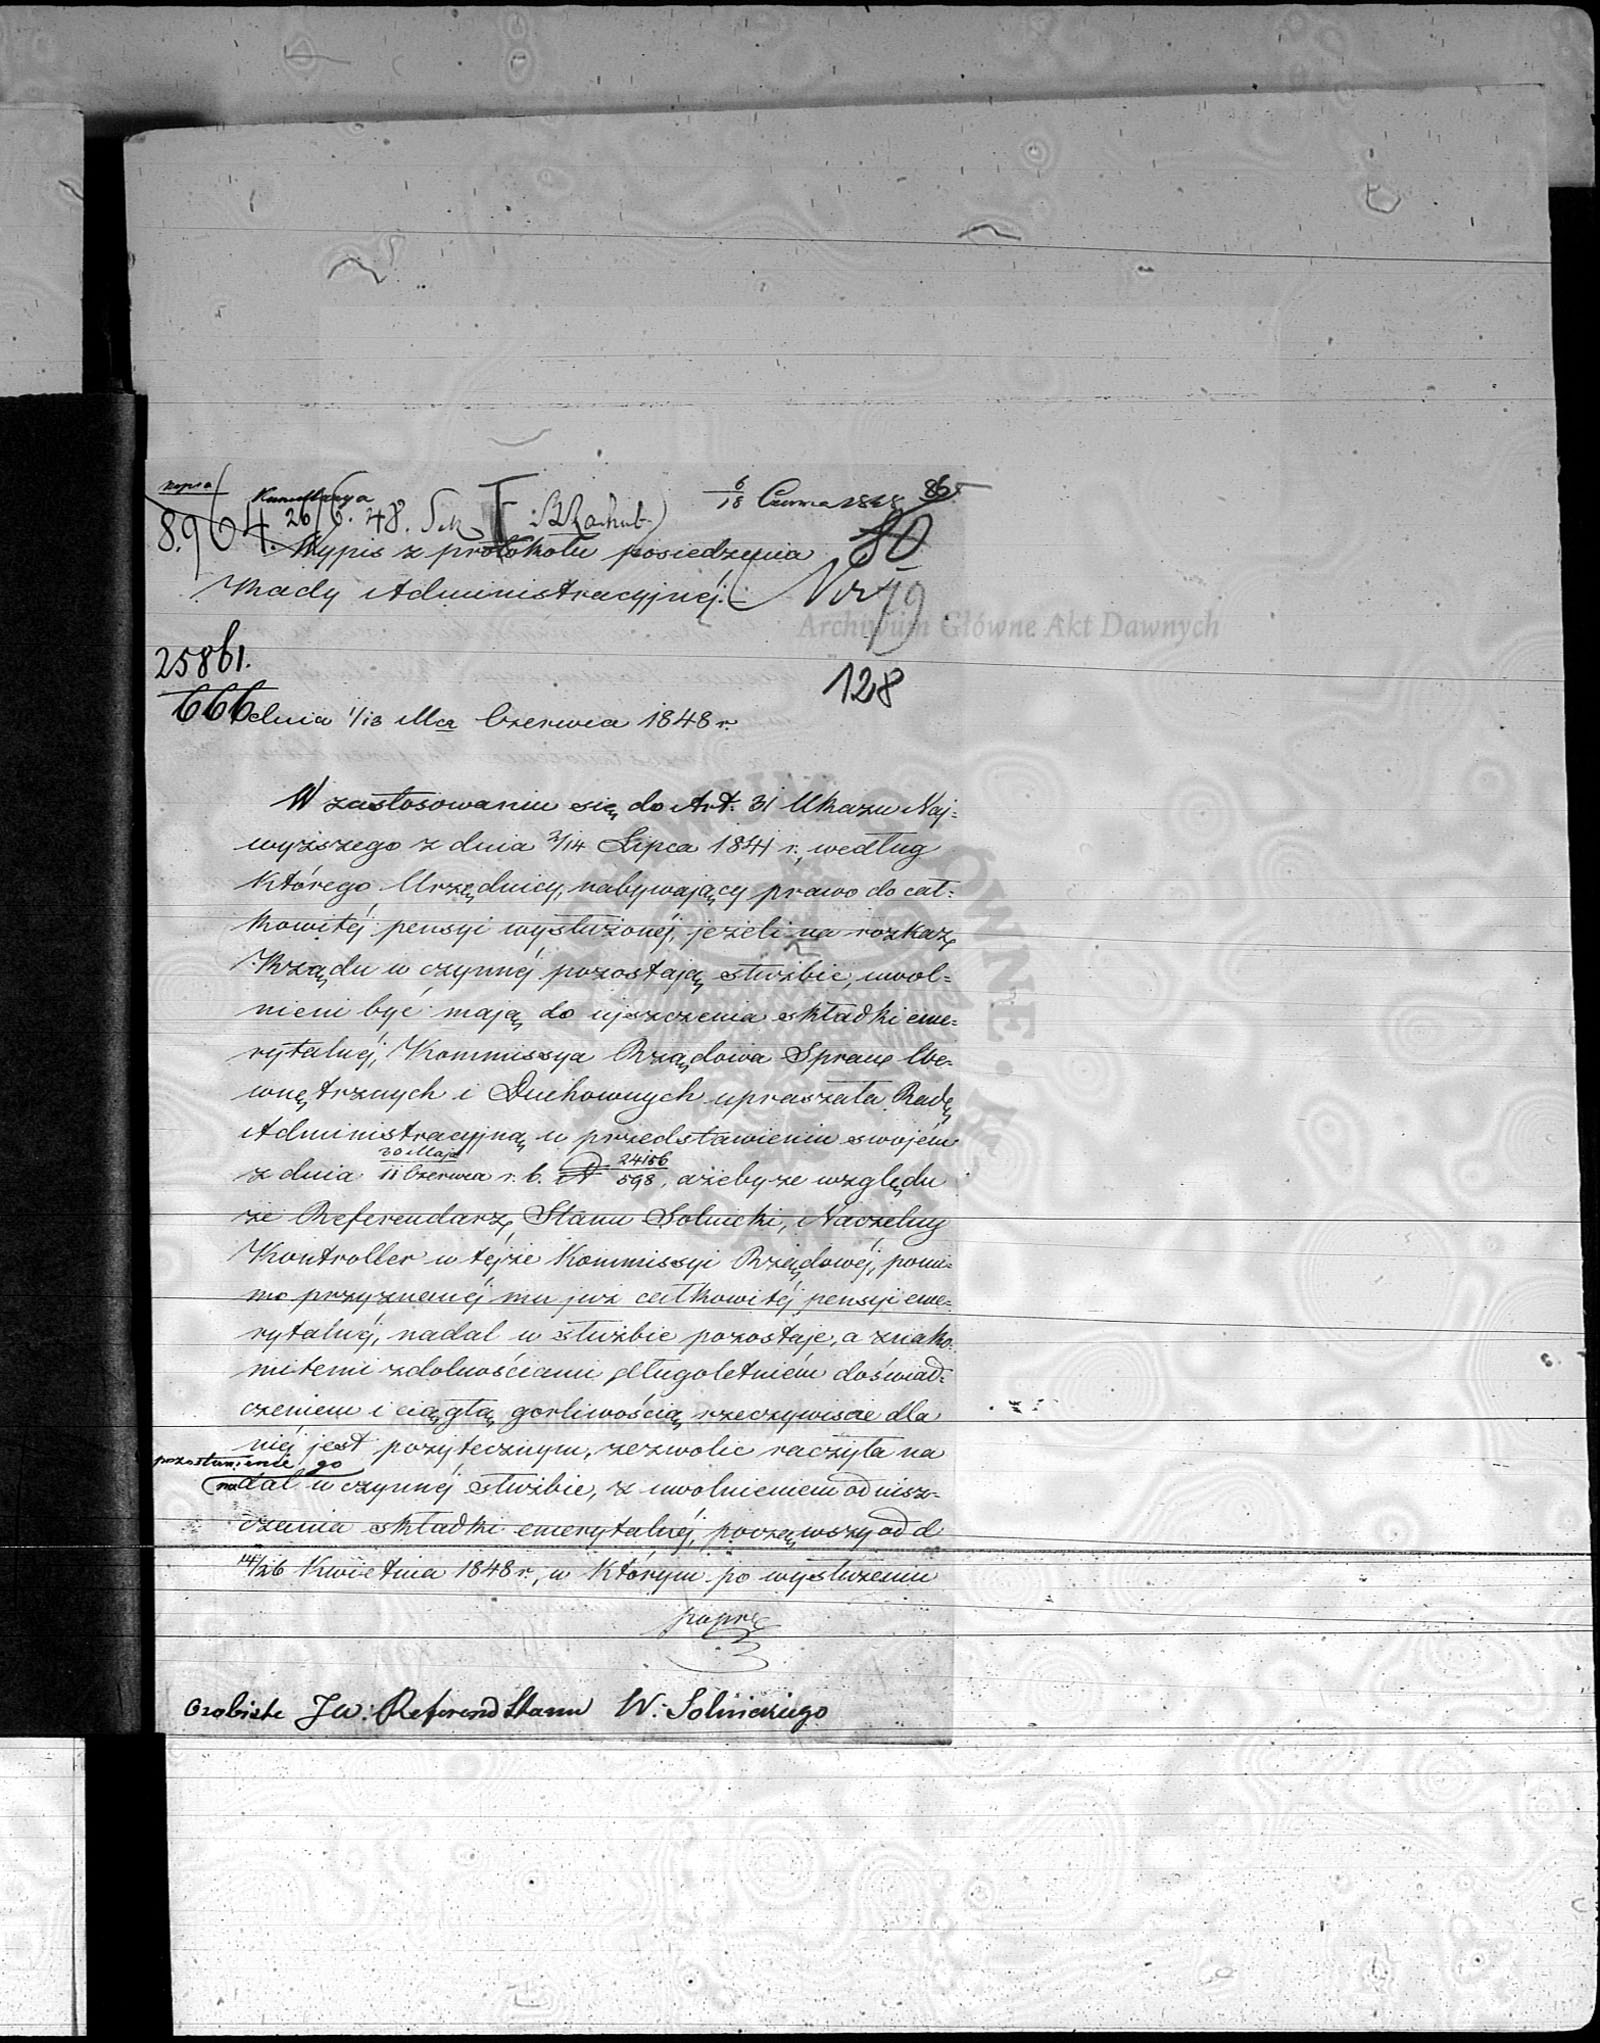 kopia
Kancellarya
6/18 Czerwca 1848. 86
8.904. 26/6. 48.
80
Wypis z protokołu posiedzenia
Rady Administracyjnéj.
Nr 79
Archiwum Główne Akt Dawnych
25861.
666
128
dnia 1/13 Mca Czerwca 1848 r.
W zastosowaniu się do Art. 31 Ukazu Naj-
wyższego z dnia 2/14 Lipca 1841 r., według
którego, Urzędnicy, nabywający prawo do cał-
kowitéj pensyi wysłużonéj, jeżeli na rozkaz
Rządu w czynnéj pozostają służbie, uwol-
nieni być mają do ujszczenia składki eme-
rytalnéj, Kommissya Rządowa Spraw We-
wnętrznych i Duchownych upraszała Radę
Administracyjną w przedstawieniu swojém
z dnia 30 Maja/11 Czerwca r. b. N 24156/598, ażeby ze względu
że Referendarz Stanu Solnicki, Naczelny
Kontroller w tejże Kommissyi Rządowéj, pomi-
mo przyznanéj mu już całkowitéj pensyi eme-
rytalnéj, nadal w służbie pozostaje, a znako-
mitemi zdolnościami długoletniém doświad-
czeniem i ciągłą gorliwością rzeczywiscie dla
niéj jest pożytecznym, zezwolic raczyła na
pozostawienie go
nadal w czynnéj służbie, z uwolnieniem od uisz-
czenia składki emerytalnéj, począwszy od d
14/26 Kwietnia 1848 r., w którym po wysłużeniu
Osobiste JW: Referend Stanu W. Solnickiego